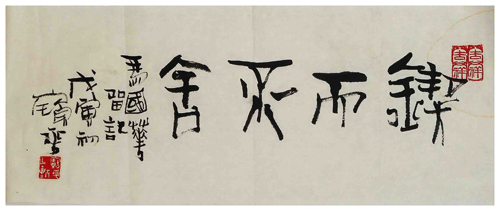 鍥而不舍
國華
留記
戊寅初